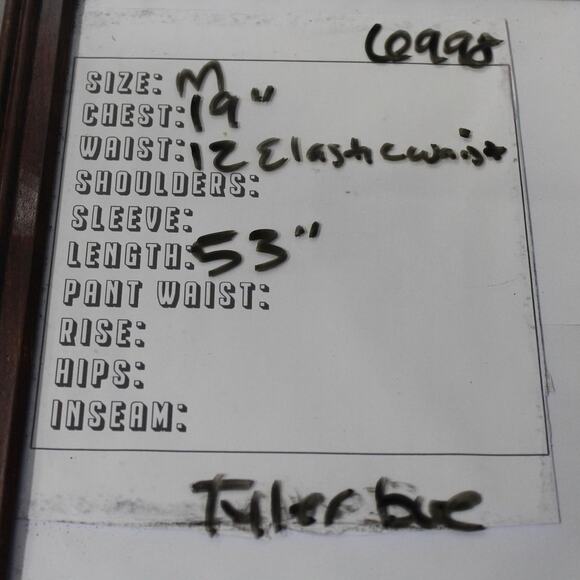 6998
SIZE: M
CHEST: 19"
WAIST: 12 Elastic waist
SHOULDERS:
SLEEVE:
LENGTH: 53"
PANT WAIST:
RISE:
HIPS:
INSEAM:
Tyler boe